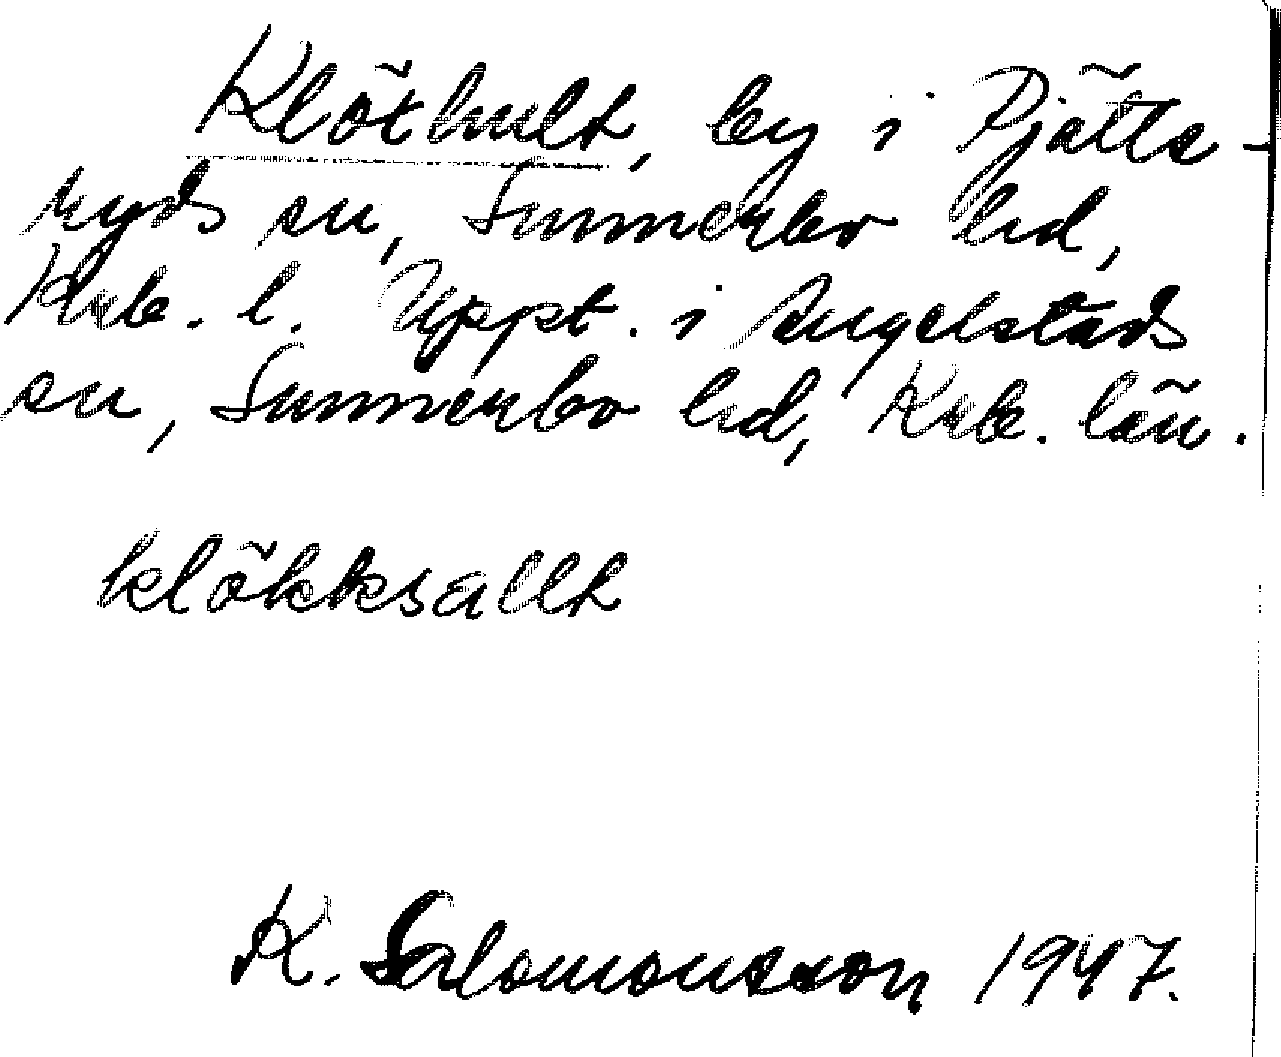 Klöthult, by i Pjätte-
ryds sn, Sunnerbo hd,
Krb. l. Uppt. i Angelstads
sn, Sunnerbo hd, Krb. län.
klökksallt
K. Salomonsson 1947.